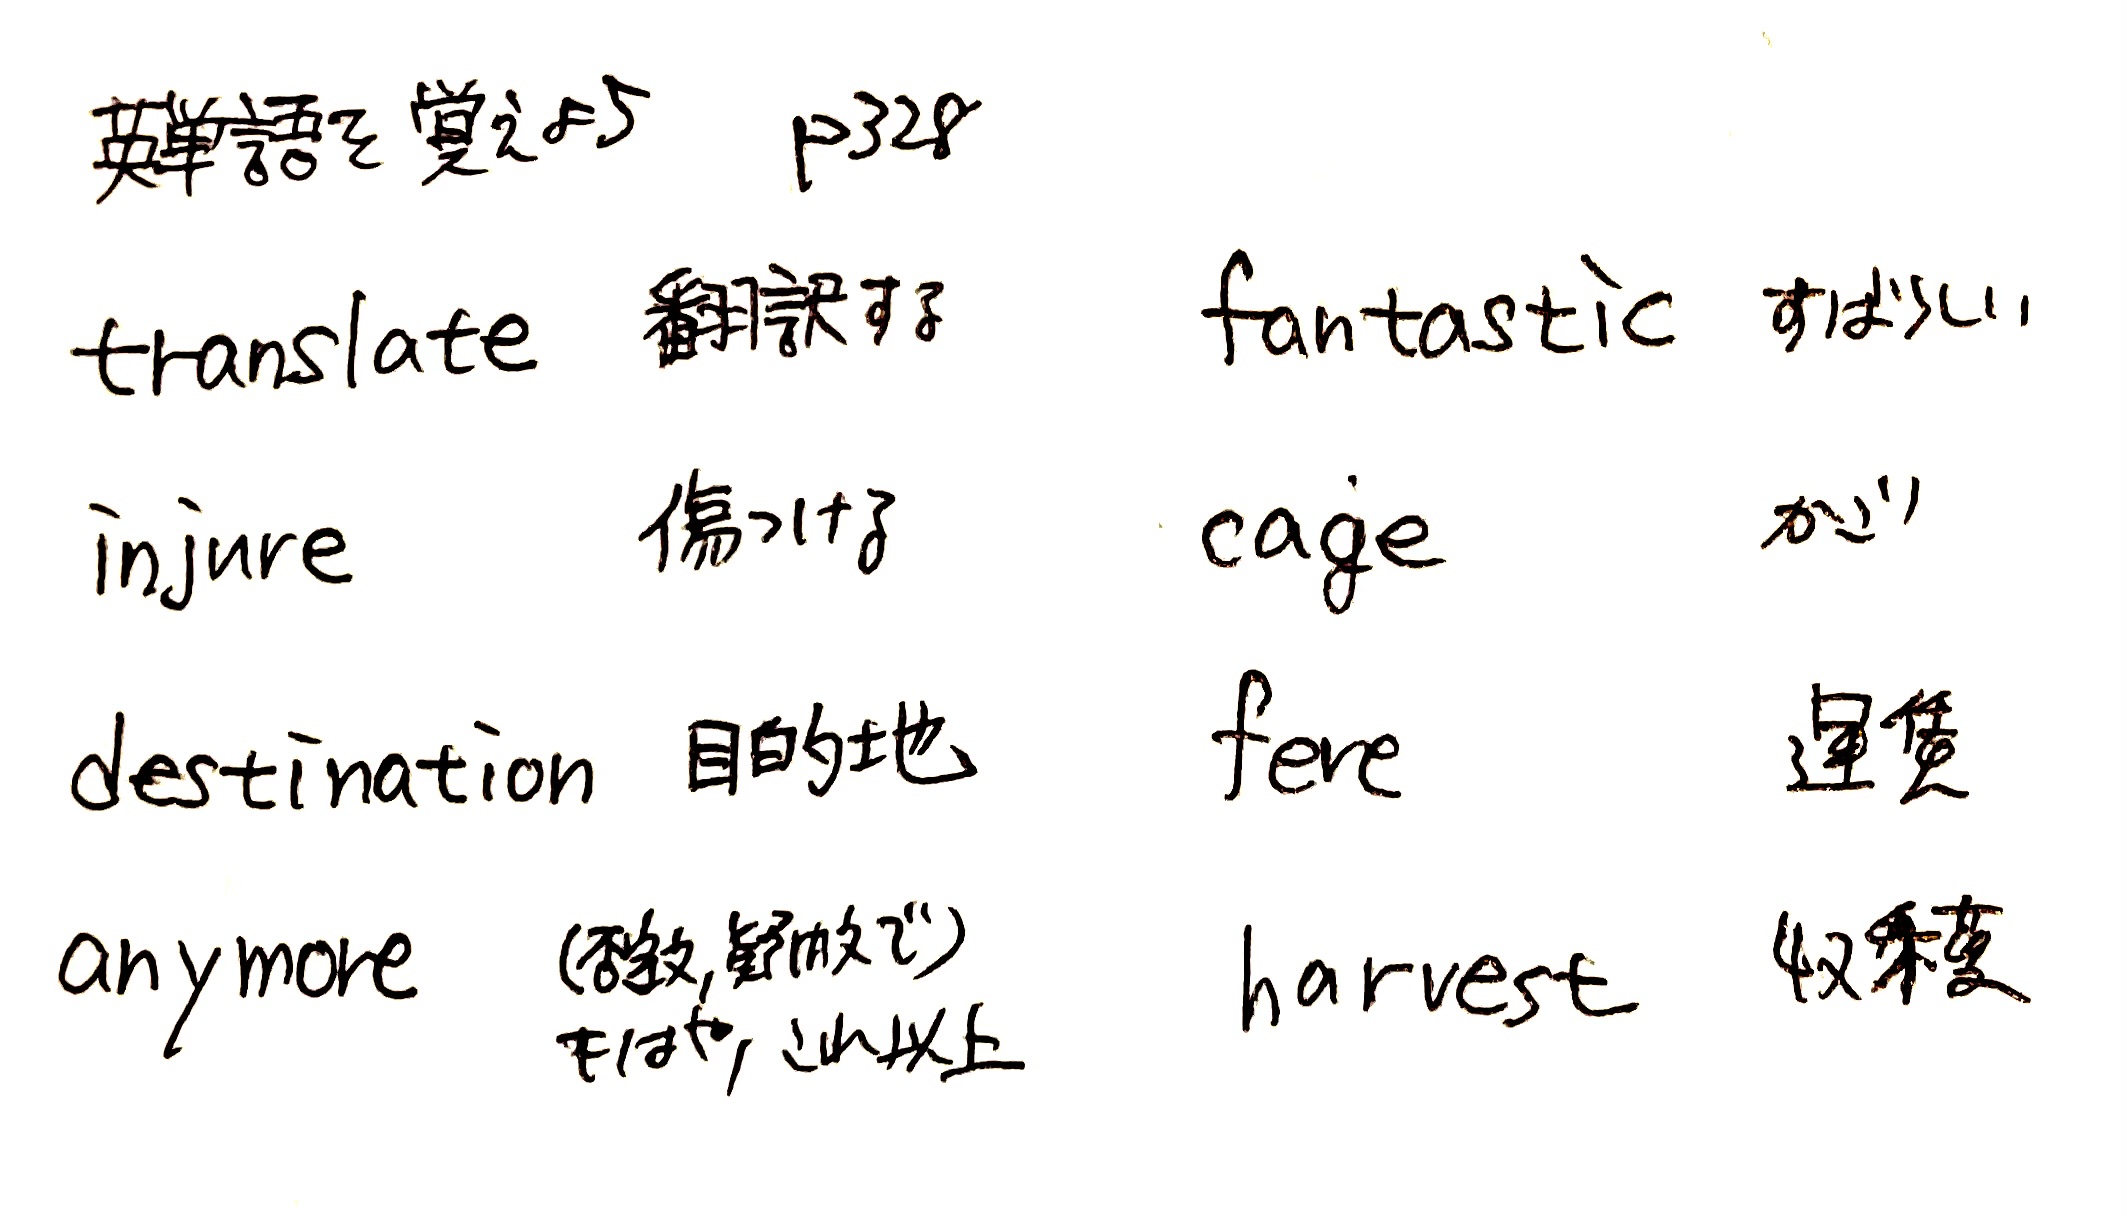 英単語を覚えよう p328
translate 翻訳する
injure 傷つける
destination 目的地
anymore (否定文,疑問文で)
もはや,これ以上
fantastic すばらしい
cage かご
fere 運賃
harvest 収穫